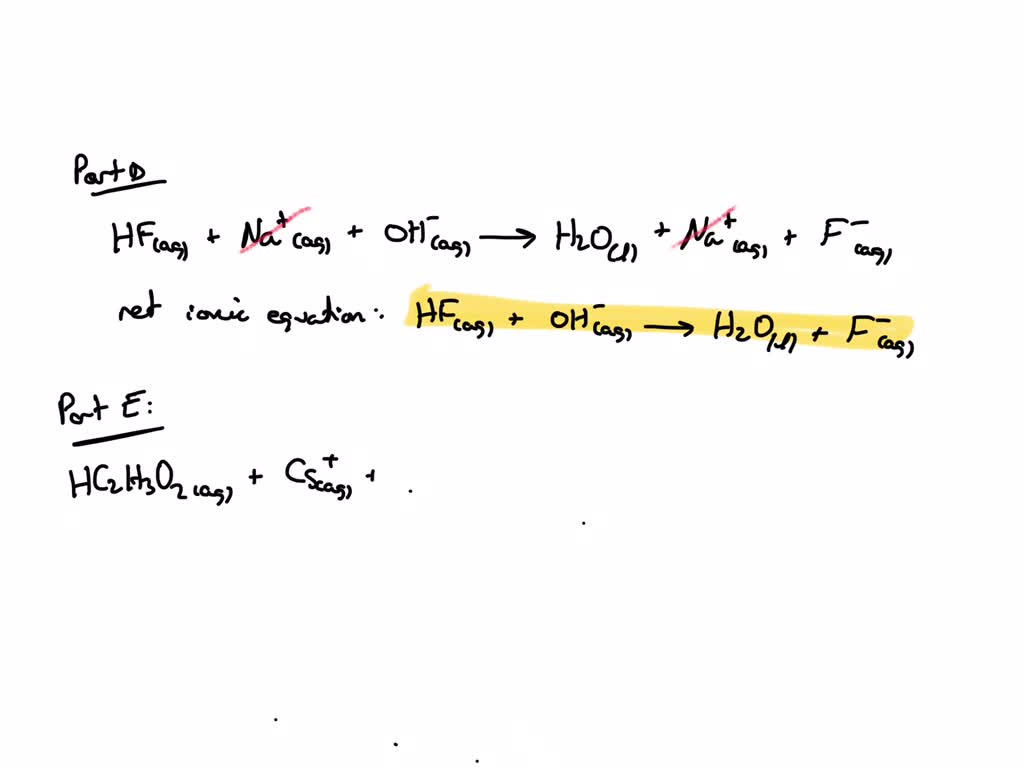 Part D
HF(aq) + Na⁺(aq) + OH⁻(aq) → H₂O(l) + Na⁺(aq) + F⁻(aq)
net ionic equation: HF(aq) + OH⁻(aq) → H₂O(l) + F⁻(aq)
Part E:
HC₂H₃O₂(aq) + Cs⁺(aq) +